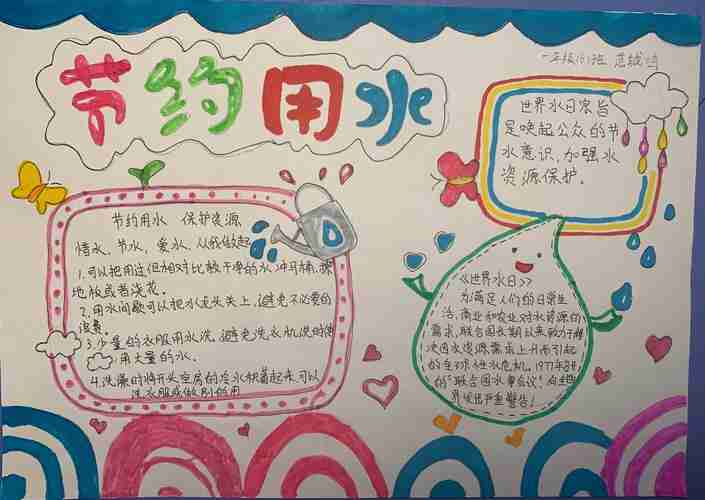 节约用水
一年级(1)班
世界水日宗旨
是唤起公众的节
水意识,加强水
资源保护。
节约用水 保护资源
惜水、节水、爱水、从我做起
1.可以把用过但相对比较干净的水冲马桶、擦
地板或者浇花。
2.用水间歇可以把水龙头关上,避免不必要的
浪费。
3.少量的衣服用水洗,避免洗衣机洗时使
用大量的水。
4.洗澡时将开头空房的冷水积蓄起来,可以
洗衣服或做别的用
《世界水日》
为满足人们的日常生
活、商业和农业对水资源的
需求,联合国长期以来致力于解
决因水资源需求上升而引起
的全球性水危机。1977年召开
的"联合国水事会议",向全世
界发出严重警告!